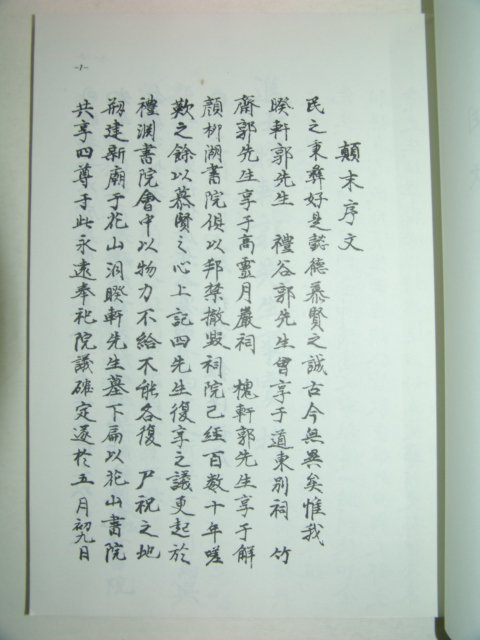 -1-
顛末序文
民之秉彛好是懿德慕賢之誠古今無異矣惟我
睽軒郭先生 禮谷郭先生曾享于道東別祠 竹
齋郭先生享于高靈月巖祠 槐軒郭先生享于觧
顔柳湖書院俱以邦禁撤毁祠院已經百数十年嗟
歎之餘以慕賢之心上記四先生復享之議更起於
禮淵書院會中以物力不給不能各復 尸祝之地
剏建新廟于花山洞睽軒先生墓下扁以花山書院
共享四尊于此永遠奉祀院議確定遂於五月初九日